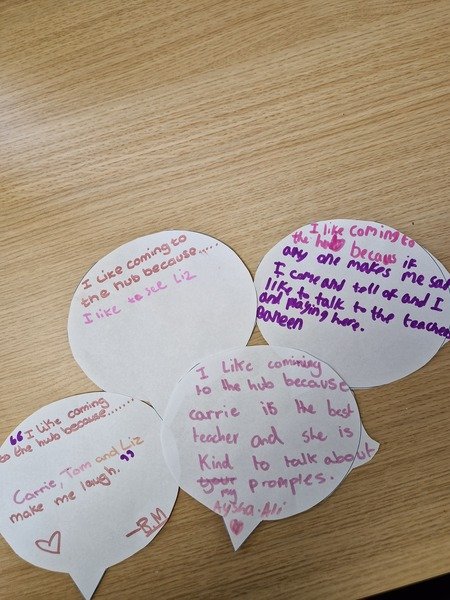 I Like coming to
the hub because.....
I like to see Liz
I like coming to
the hub becaus if
any one makes me sad
I come and tell of and I
like to talk to the teachers
and playing here.
"I like coming
to the hub because.......
Carrie, Tom and Liz
make me laugh."
-B.M
I Like comining
to the hub because
carrie is the best
teacher and she is
Kind to talk about
your promples.
my
Aysha.Ali